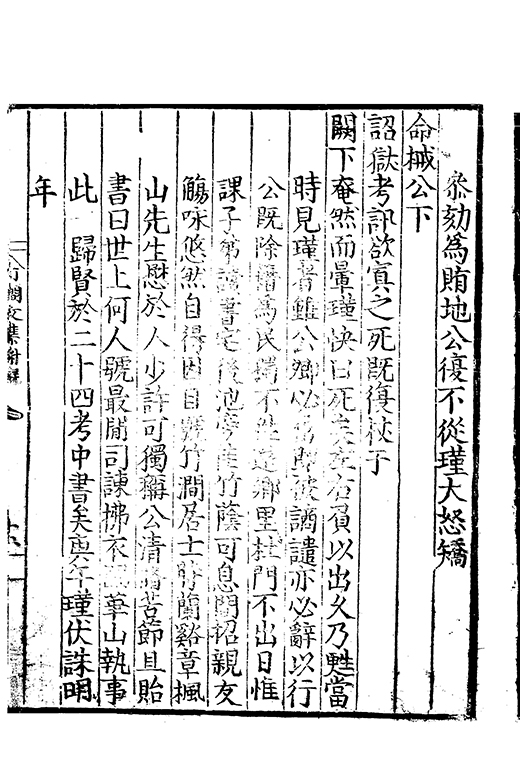 叅劾為賄地公復不從瑾大怒矯
命械公下
詔獄考訊欲寘之死既復杖于
闕下奄然而暈瑾快曰死矣左右負以出久乃甦當
時見瑾者雖公卿必 即被譴亦必辭以行
公既除籍為民獨不 還鄉里杜門不出日惟
課子弟讀書宅後池旁 竹蔭可息間招親友
觴咏悠然自得因自號竹澗居士時蘭谿章楓
山先生慰於人少許可獨稱公清 苦節且貽
書曰世上何人號最閒司諫拂衣 華山執事
此 歸賢於二十四考中書矣庚午瑾伏誅明
年
竹澗文集附錄